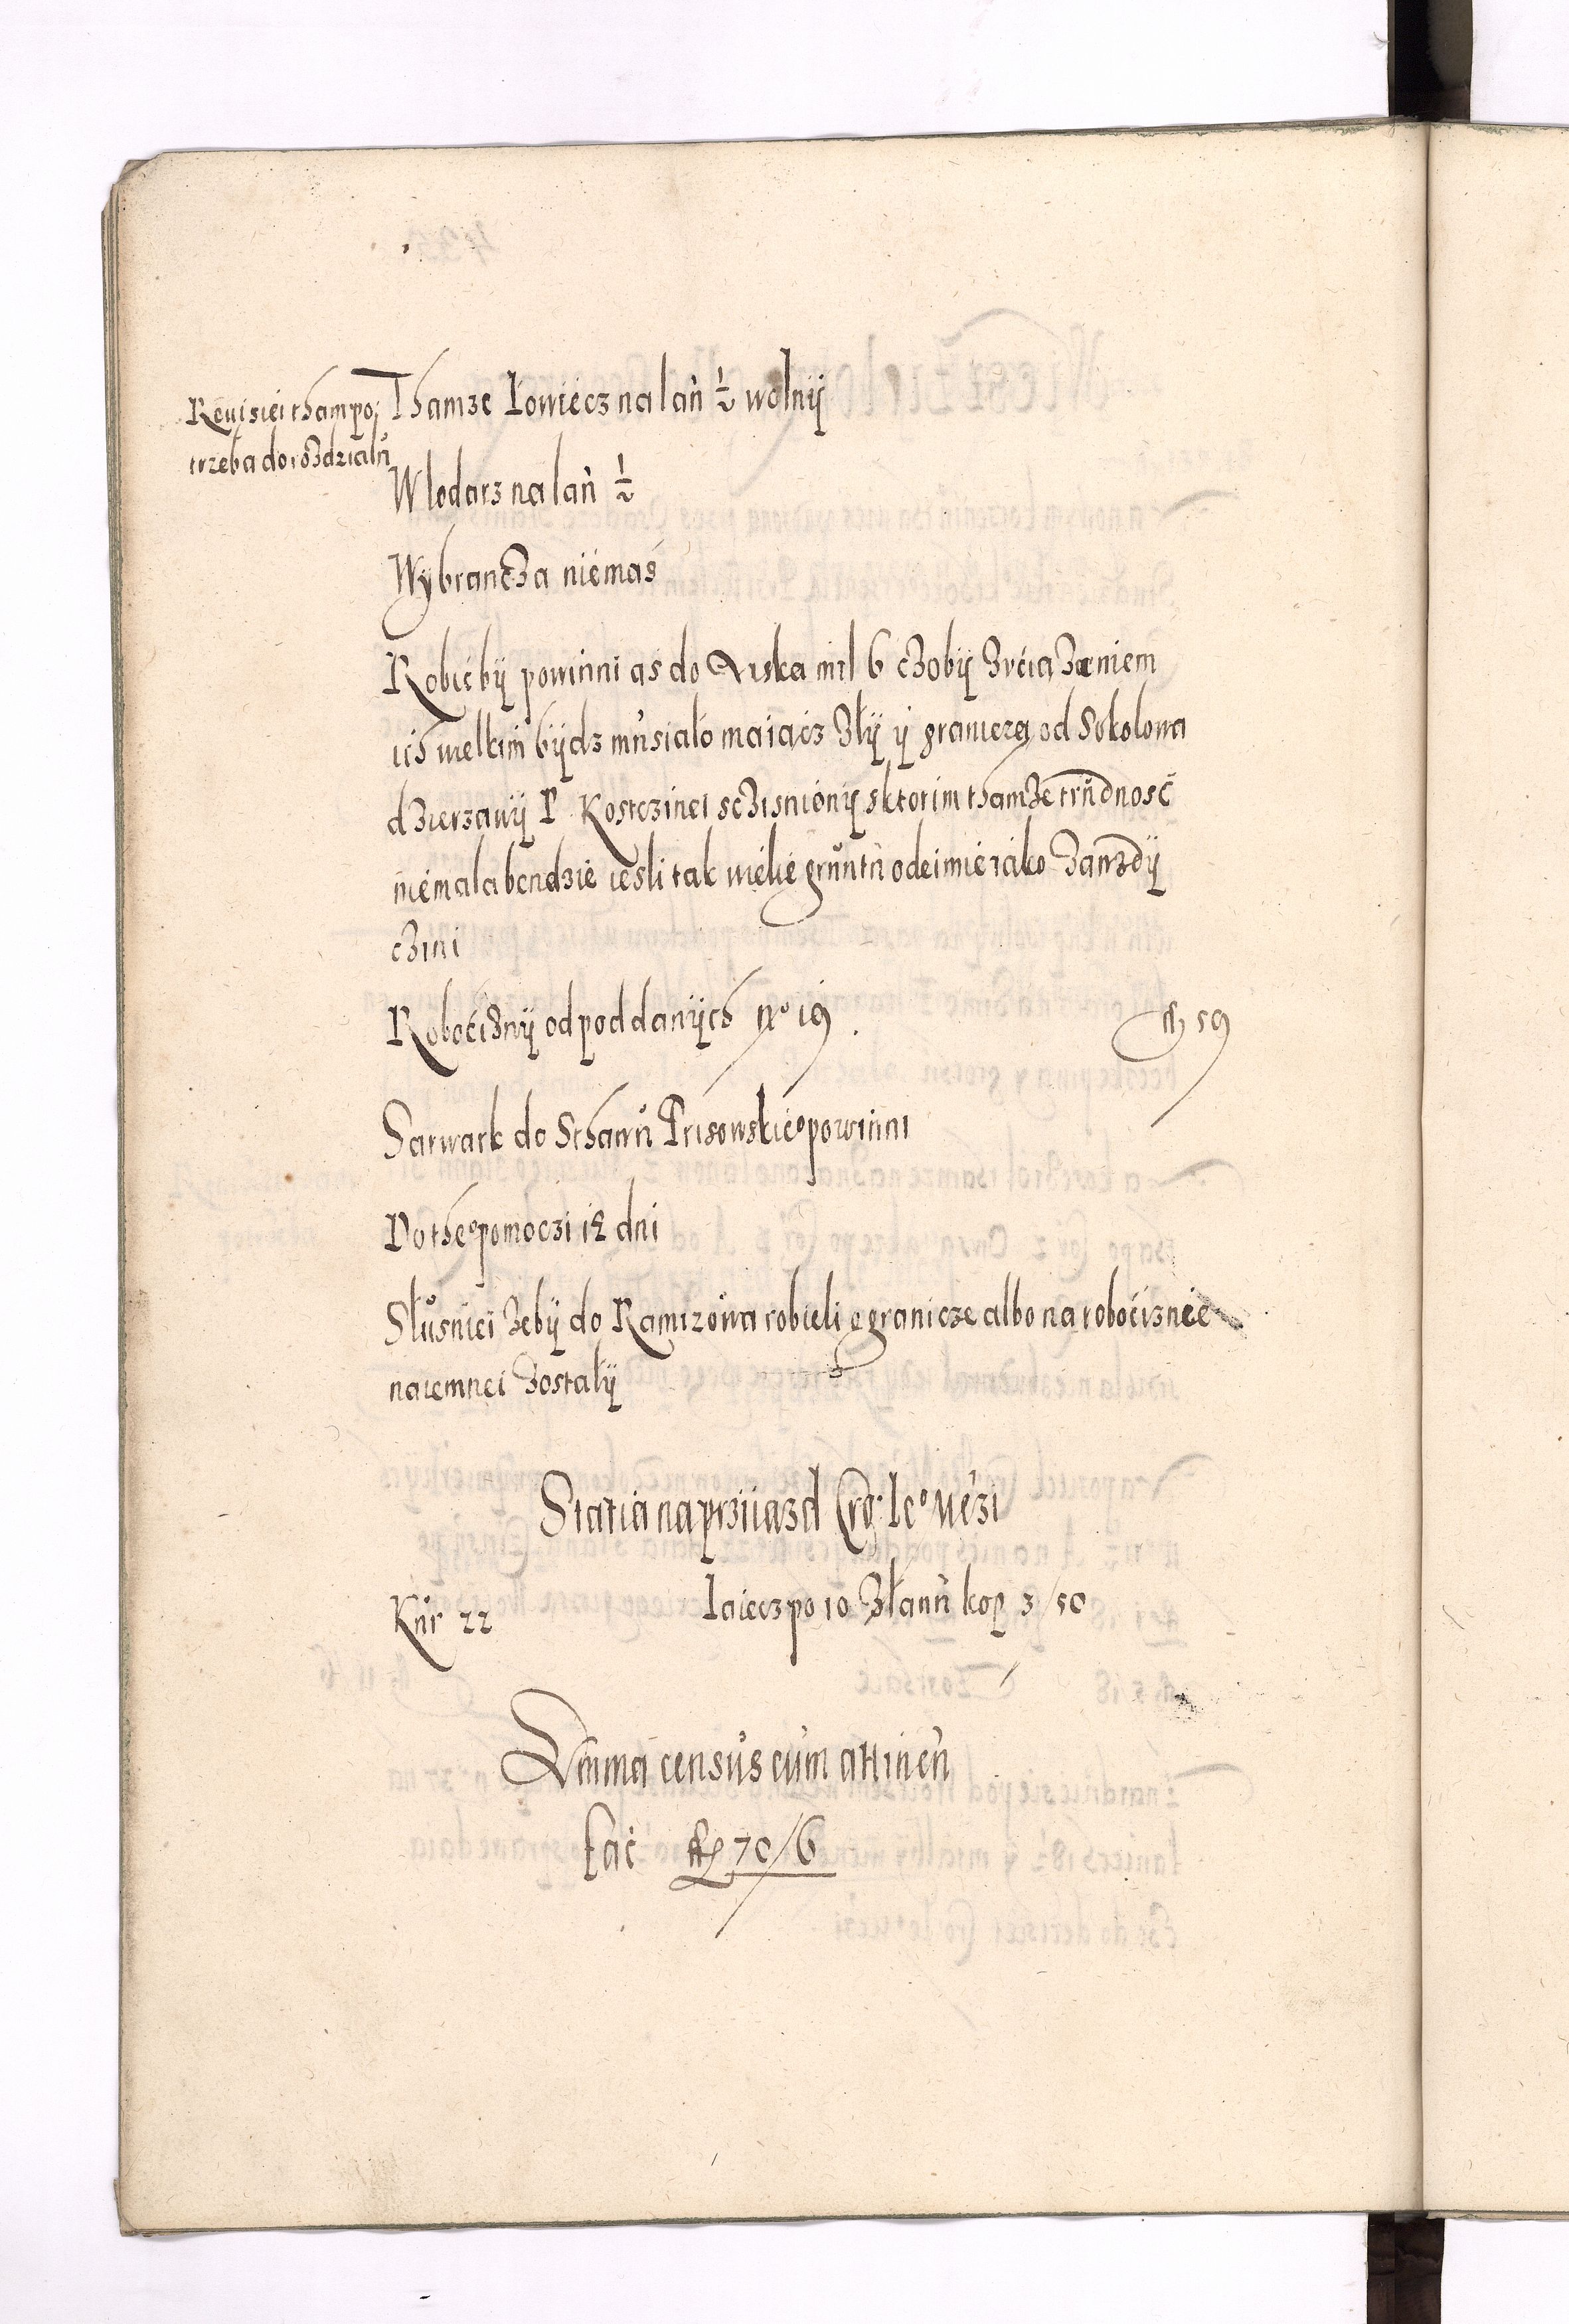 Reuisiei tham po
trzeba do rozdzialu
Thamze Lowiecz na lan ½ wolnÿ
Wlodarz na lan ½
Wÿbrancza niemas
Robic bÿ powinni as do Liska mil 6 czobÿ z vciazeniem
ich welkim bÿdz musialo maiacz zlÿ ÿ granicza od Sokolowa
dzierzawÿ P Kostczinei sczisnionÿ s ktorim thamze trudnosc
niemala bendzie iesli tak wiele gruntu odeimie iako zawzdÿ
czini
Robocisnÿ od poddanÿch No 19 . fl 59
Sarwark do Sthawu Prisowskieo powinni
Do theo pomoczi 12 dni
Slusniei zebÿ do Ramzowa robieli o granicze albo na robociznie
naiemnei zostalÿ
Statia na prziiazd Kro: leo Mczi
Kur 22 Iaiecz po 10 z lanu kop 3/50
Summa census cum attinen
facit fl 70/6